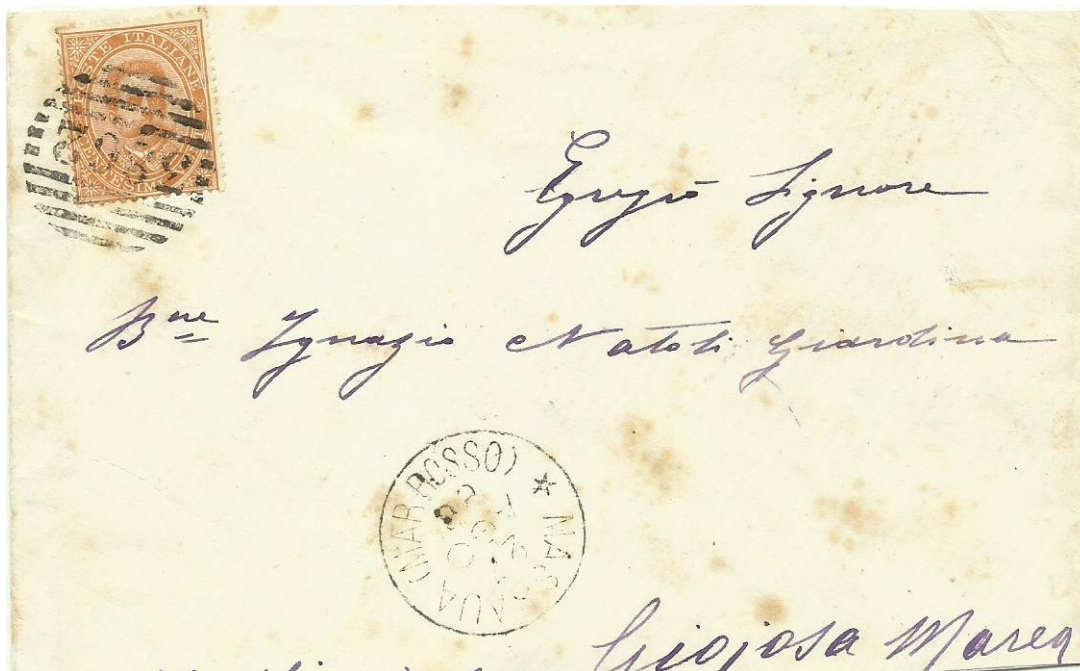 POSTE ITALIANE
Egregio Signore
Bne Ignazio Natoli Giardina
MASSAUA (MAR ROSSO)
Giojosa Marea